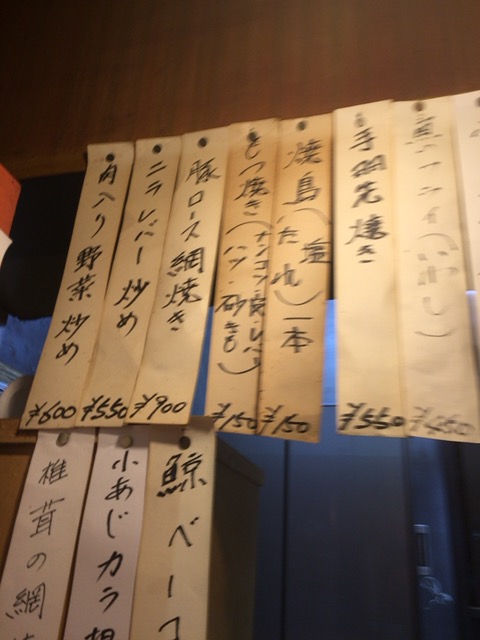 手羽先焼き ¥550
焼鳥(たれ・塩)一本 ¥150
もつ焼き(ナンコツ・砂きも・ハツ) ¥150
豚ロース網焼き ¥900
ニラレバー炒め ¥550
肉入り野菜炒め ¥600
鯨ベーコ
小あじカラ揚
椎茸の網